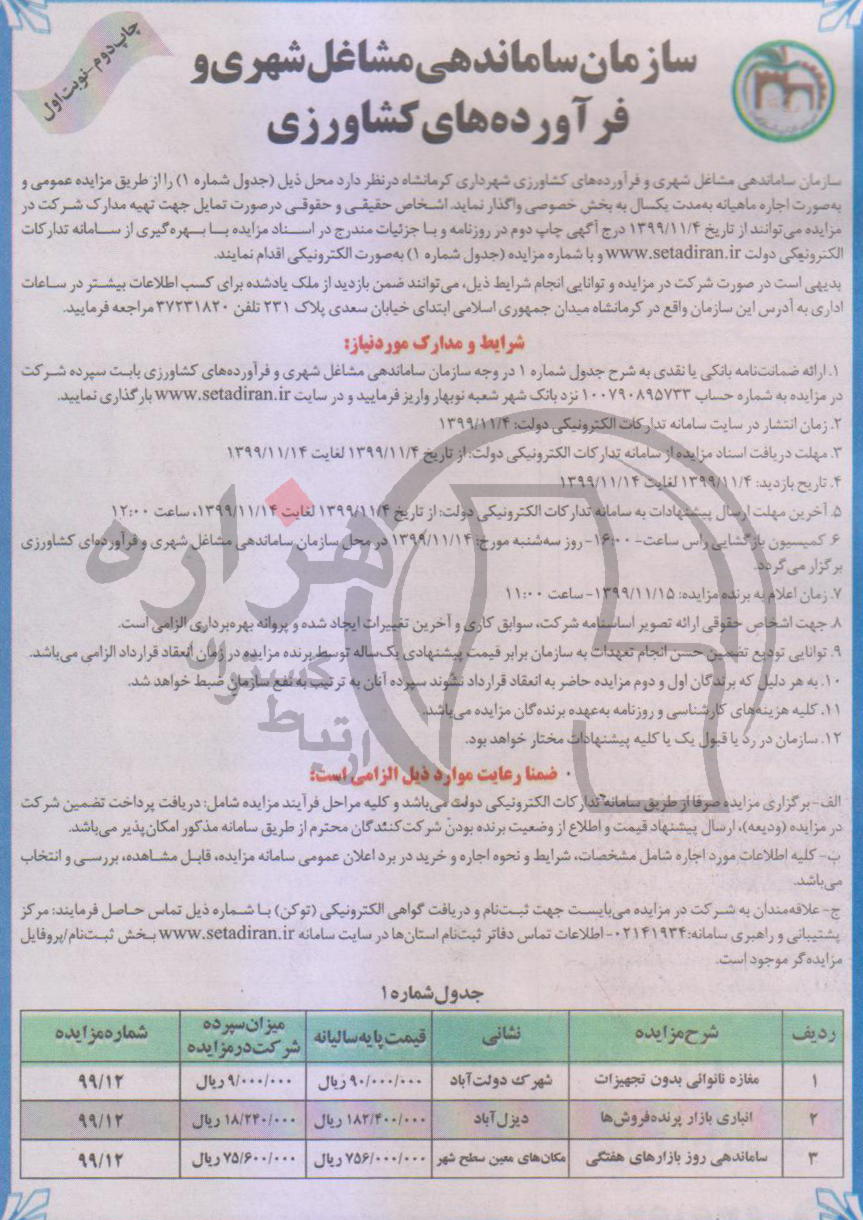 چاپ دوم-نوبت اول
سازمان ساماندهی مشاغل شهری و
فرآورده‌های کشاورزی
سازمان ساماندهی مشاغل شهری و فرآورده‌های کشاورزی شهرداری کرمانشاه درنظر دارد محل ذیل (جدول شماره ۱) را از طریق مزایده عمومی و
به‌صورت اجاره ماهیانه به‌مدت یکسال به بخش خصوصی واگذار نماید. اشخاص حقیقی و حقوقی درصورت تمایل جهت تهیه مدارک شرکت در
مزایده می‌توانند از تاریخ ۱۳۹۹/۱۱/۴ درج آگهی چاپ دوم در روزنامه و با جزئیات مندرج در اسناد مزایده با بهره‌گیری از سامانه تدارکات
الکترونیکی دولت www.setadiran.ir و با شماره مزایده (جدول شماره ۱) به‌صورت الکترونیکی اقدام نمایند.
بدیهی است در صورت شرکت در مزایده و توانایی انجام شرایط ذیل، می‌توانند ضمن بازدید از ملک یادشده برای کسب اطلاعات بیشتر در ساعات
اداری به آدرس این سازمان واقع در کرمانشاه میدان جمهوری اسلامی ابتدای خیابان سعدی پلاک ۲۳۱ تلفن ۳۷۲۳۱۸۲۰ مراجعه فرمایید.
شرایط و مدارک موردنیاز:
۱. ارائه ضمانت‌نامه بانکی یا نقدی به شرح جدول شماره ۱ در وجه سازمان ساماندهی مشاغل شهری و فرآورده‌های کشاورزی بابت سپرده شرکت
در مزایده به شماره حساب ۱۰۰۷۹۰۸۹۵۷۳۳ نزد بانک شهر شعبه نوبهار واریز فرمایید و در سایت www.setadiran.ir بارگذاری نمایید.
۲. زمان انتشار در سایت سامانه تدارکات الکترونیکی دولت: ۱۳۹۹/۱۱/۴
۳. مهلت دریافت اسناد مزایده از سامانه تدارکات الکترونیکی دولت: از تاریخ ۱۳۹۹/۱۱/۴ لغایت ۱۳۹۹/۱۱/۱۴
۴. تاریخ بازدید: ۱۳۹۹/۱۱/۴ لغایت ۱۳۹۹/۱۱/۱۴
۵. آخرین مهلت ارسال پیشنهادات به سامانه تدارکات الکترونیکی دولت: از تاریخ ۱۳۹۹/۱۱/۴ لغایت ۱۳۹۹/۱۱/۱۴، ساعت ۱۲:۰۰
۶. کمیسیون بازگشایی راس ساعت- ۱۶:۰۰- روز سه‌شنبه مورخ: ۱۳۹۹/۱۱/۱۴ در محل سازمان ساماندهی مشاغل شهری و فرآورده‌ای کشاورزی
برگزار می‌گردد.
۷. زمان اعلام به برنده مزایده: ۱۳۹۹/۱۱/۱۵- ساعت ۱۱:۰۰
۸. جهت اشخاص حقوقی ارائه تصویر اساسنامه شرکت، سوابق کاری و آخرین تغییرات ایجاد شده و پروانه بهره‌برداری الزامی است.
۹. توانایی تودیع تضمین حسن انجام تعهدات به سازمان برابر قیمت پیشنهادی یک‌ساله توسط برنده مزایده در زمان انعقاد قرارداد الزامی می‌باشد.
۱۰. به هر دلیل که برندگان اول و دوم مزایده حاضر به انعقاد قرارداد نشوند سپرده آنان به ترتیب به نفع سازمان ضبط خواهد شد.
۱۱. کلیه هزینه‌های کارشناسی و روزنامه به‌عهده برنده‌گان مزایده می‌باشد.
۱۲. سازمان در رد یا قبول یک یا کلیه پیشنهادات مختار خواهد بود.
ضمنا رعایت موارد ذیل الزامی است:
الف- برگزاری مزایده صرفا از طریق سامانه تدارکات الکترونیکی دولت می‌باشد و کلیه مراحل فرآیند مزایده شامل: دریافت پرداخت تضمین شرکت
در مزایده (ودیعه)، ارسال پیشنهاد قیمت و اطلاع از وضعیت برنده بودن شرکت‌کنندگان محترم از طریق سامانه مذکور امکان‌پذیر می‌باشد.
ب- کلیه اطلاعات مورد اجاره شامل مشخصات، شرایط و نحوه اجاره و خرید در برد اعلان عمومی سامانه مزایده، قابل مشاهده، بررسی و انتخاب
می‌باشد.
ج- علاقه‌مندان به شرکت در مزایده می‌بایست جهت ثبت‌نام و دریافت گواهی الکترونیکی (توکن) با شماره ذیل تماس حاصل فرمایند: مرکز
پشتیبانی و راهبری سامانه: ۰۲۱۴۱۹۳۴- اطلاعات تماس دفاتر ثبت‌نام استان‌ها در سایت سامانه www.setadiran.ir بخش ثبت‌نام/پروفایل
مزایده‌گر موجود است.
جدول شماره ۱
ردیف شرح مزایده نشانی قیمت پایه سالیانه میزان سپرده شرکت در مزایده شماره مزایده
۱ مغازه نانوائی بدون تجهیزات شهرک دولت‌آباد ۹۰/۰۰۰/۰۰۰ ریال ۹/۰۰۰/۰۰۰ ریال ۹۹/۱۲
۲ انباری بازار پرنده‌فروش‌ها دیزل‌آباد ۱۸۲/۴۰۰/۰۰۰ ریال ۱۸/۲۴۰/۰۰۰ ریال ۹۹/۱۲
۳ ساماندهی روز بازارهای هفتگی مکان‌های معین سطح شهر ۷۵۶/۰۰۰/۰۰۰ ریال ۷۵/۶۰۰/۰۰۰ ریال ۹۹/۱۲
هزاره
گستران
ارتباط